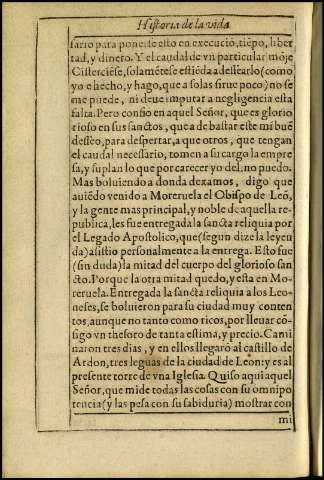 Historia de la vida
sario para ponerse esto en execució, tiẽpo, liber
tad, y dinero. Y el caudal de vn particular mõje
Cisterciẽse, solamẽte se estiẽde a dessearlo (como
yo e hecho, y hago, que a solas sirue poco) no se
me puede, ni deue imputar a negligencia esta
falta. Pero confio en aquel Señor, que es glorio
rioso en sus sanctos, que a de bastar este mi buẽ
desseo, para despertar, a que otros, que tengan
el caudal necessario, tomen a su cargo la empre
sa, y suplan lo que por carecer yo del, no puedo.
Mas boluiendo a donda dexamos, digo que
auiẽdo venido a Moreruela el Obispo de Leõ,
y la gente mas principal, y noble de aquella re-
publica, les fue entregada la sancta reliquia por
el Legado Apostolico, que (segun dize la leyen
da) assistio personalmente a la entrega. Esto fue
(sin duda) la mitad del cuerpo del glorioso san
cto. Porque la otra mitad quedo, y esta en Mo-
reruela. Entregada la sancta reliquia a los Leo-
neses, se boluieron para su ciudad muy conten
tos, aunque no tanto como ricos, por lleuar cõ-
sigo vn thesoro de tanta estima, y precio. Cami
naron tres dias, y en ellos llegarõ al castillo de
Ardon, tres leguas de la ciudad de Leon: y es al
presente torre de vna Iglesia. Quiso aqui aquel
Señor, que mide todas las cosas con su omnipo
tencia (y las pesa con su sabiduria) mostrar con
mi